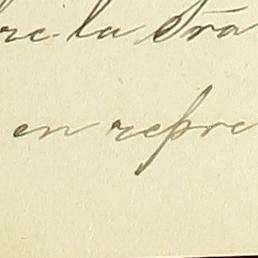 re la tra
en repre